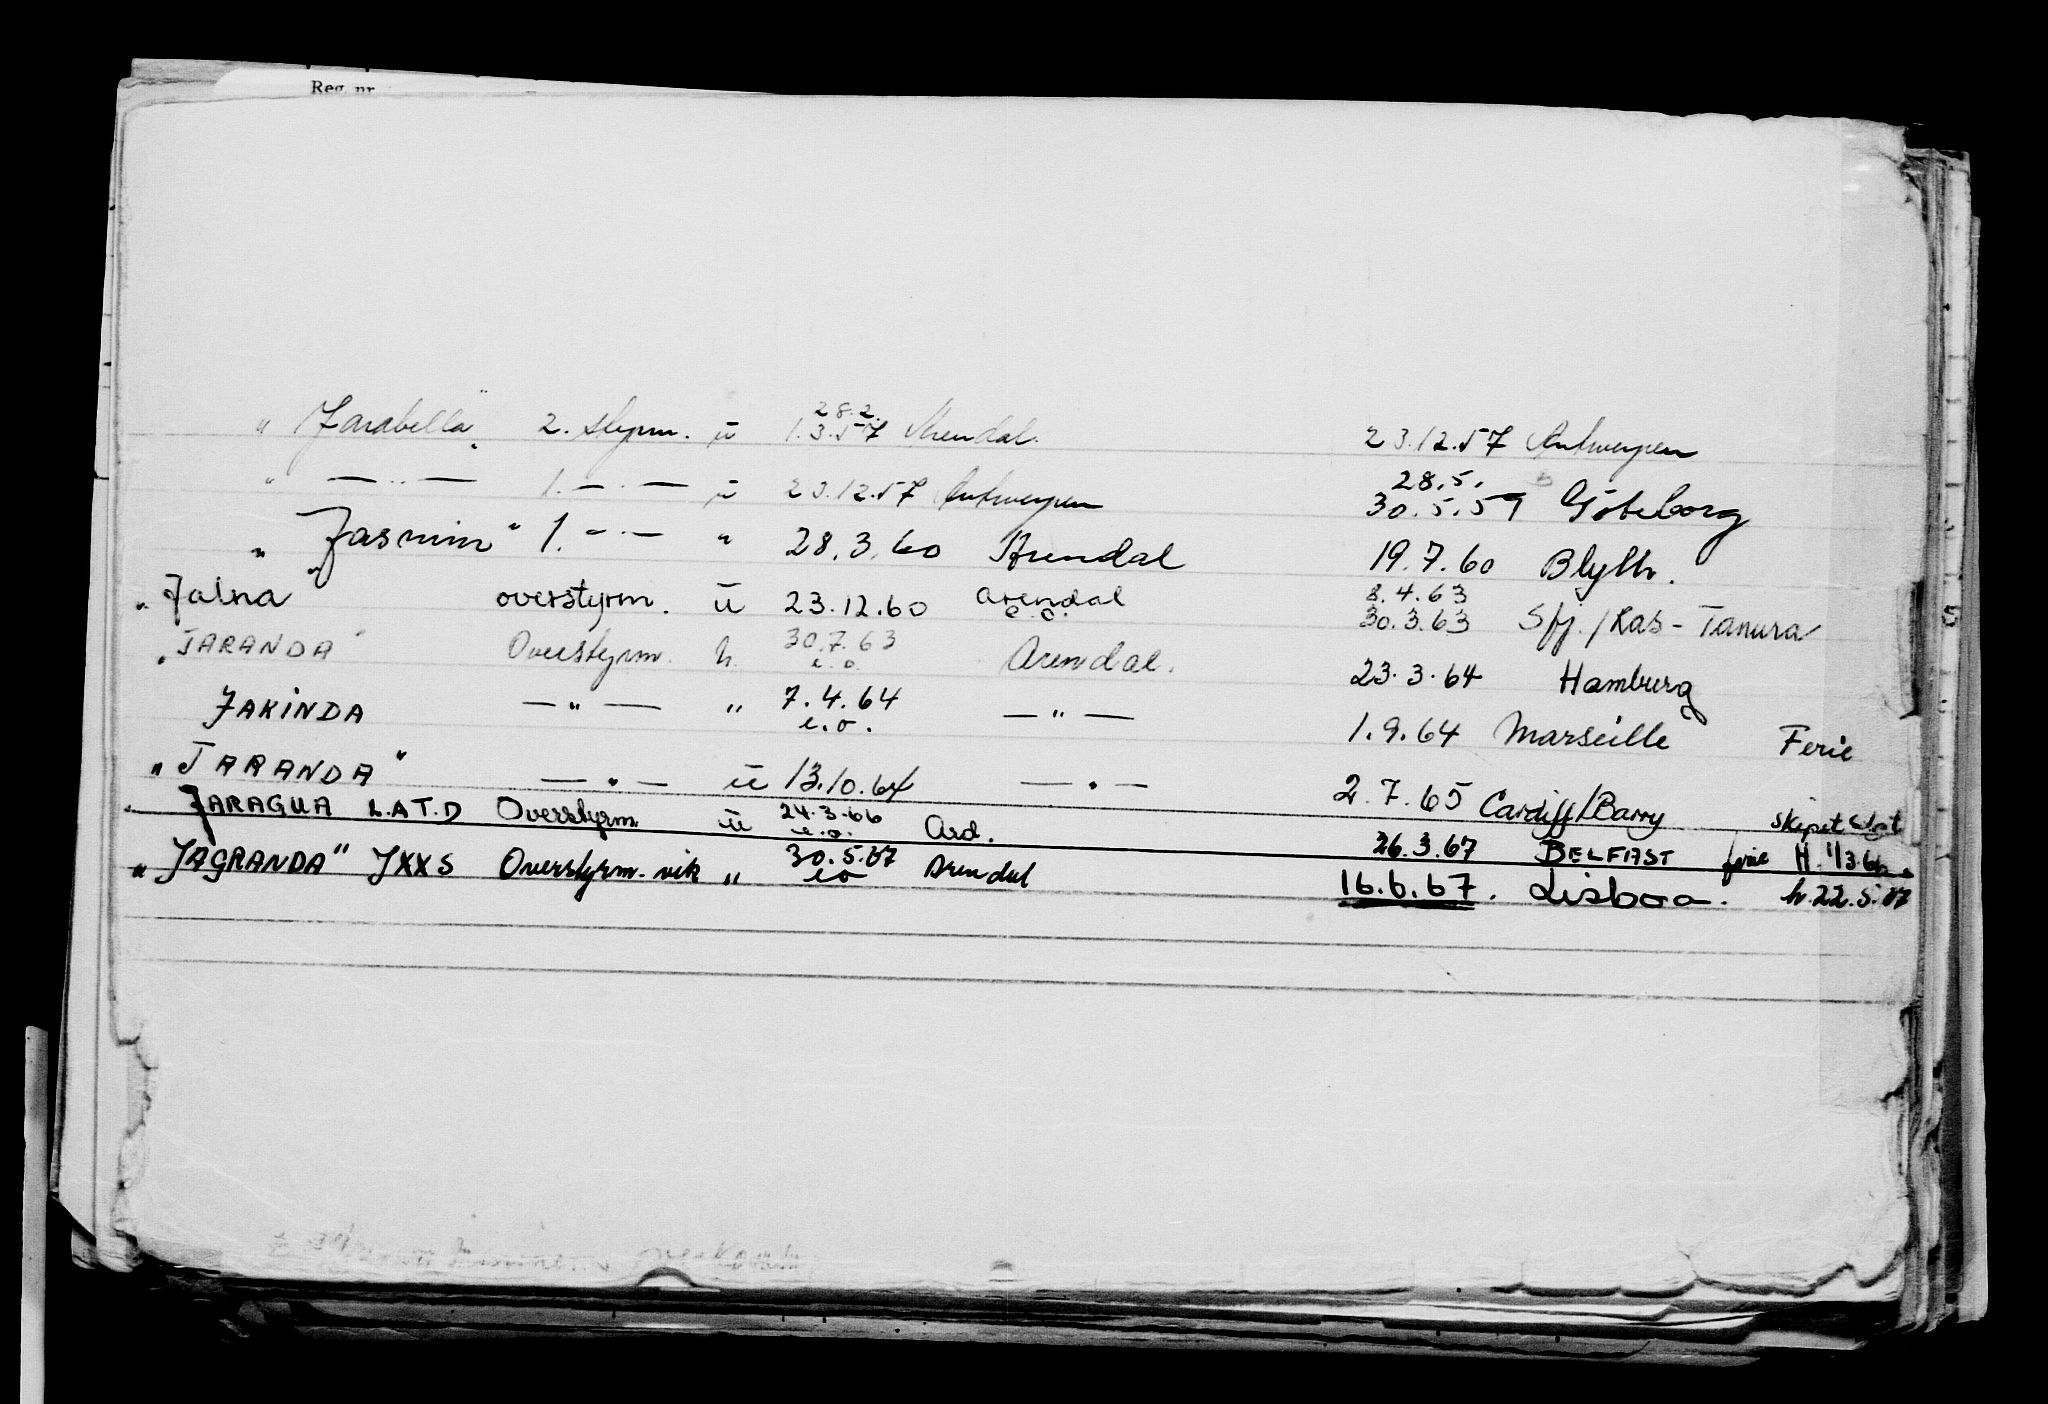 Reg. nr.
" Jarabella" 2. styrm. ū 28.2. 1.3.57 Arendal. 23.12.57 Antwerpen
" — " — 1. — " — ū 23.12.57 Antwerpen 28.5. 30.5.59 Göteborg
" Jasmin" 1. — " — " 28.3.60 Arendal 19.7.60 Blyth.
"Jalna" overstyrm. ū 23.12.60 Arendal e.o. 8.4.63 30.3.63 Sfj./Ras-Tanura
"JARANDA" Overstyrm. h. 30.7.63 e.o. Arendal. 23.3.64 Hamburg
JAKINDA — " — " 7.4.64 e.o. — " — 1.9.64 Marseille Ferie
"JARANDA" — " — ū 13.10.64 — " — 2.7.65 Cardiff/Barry skipet solgt
JARAGUA L.A.T.D Overstyrm. ū 24.3.66 e.o. Ard. 26.3.67 BELFAST ferie H. 1/3.66.
"JAGRANDA" JXXS Overstyrm. vik " 30.5.67 eo Arendal 16.6.67. Lisboa. h.22.5.67